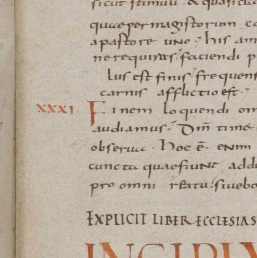 sicut stimuli · & quasi cla
quae per magistorum co
a pastore uno; his am
ne requiras; faciendi p
lus est finis frequens
carnis afflictio est;
XXXI Finem loquendi om
audiamus; Dm time
observa; Hoc ē enim
cuncta quae fiunt addu
pro omni erratu, sive bo
EXPLICIT LIBER ECCLESIAS
INCIPIT